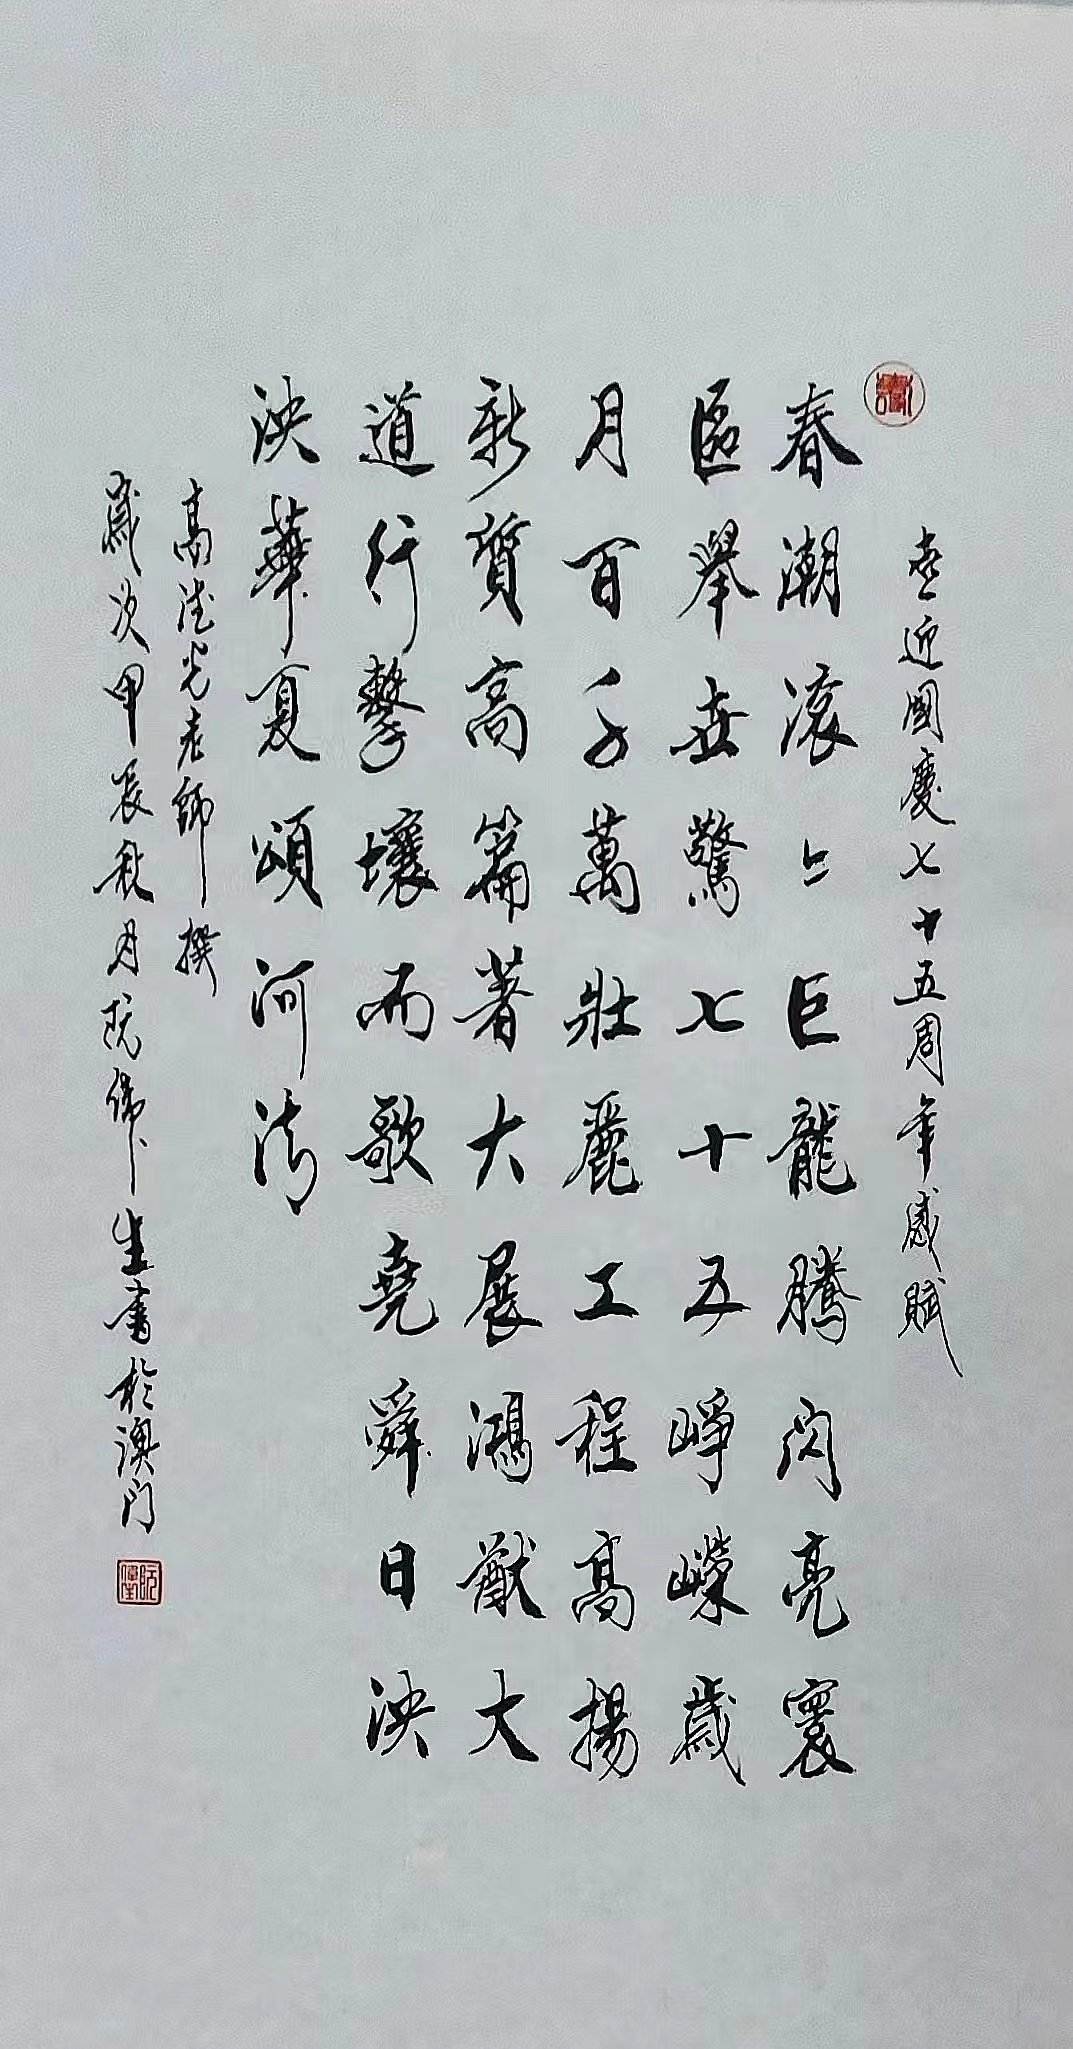 喜迎國慶七十五周年感賦
春潮滾〻巨龍騰閃亮寰
區舉世驚七十五崢嶸歲
月百千萬壯麗工程高揚
新質高篇著大展鴻猷大
道行擊壤而歌堯舜日泱
泱華夏頌河清
高德光老師撰
歲次甲辰秋月阮偉生書於澳门